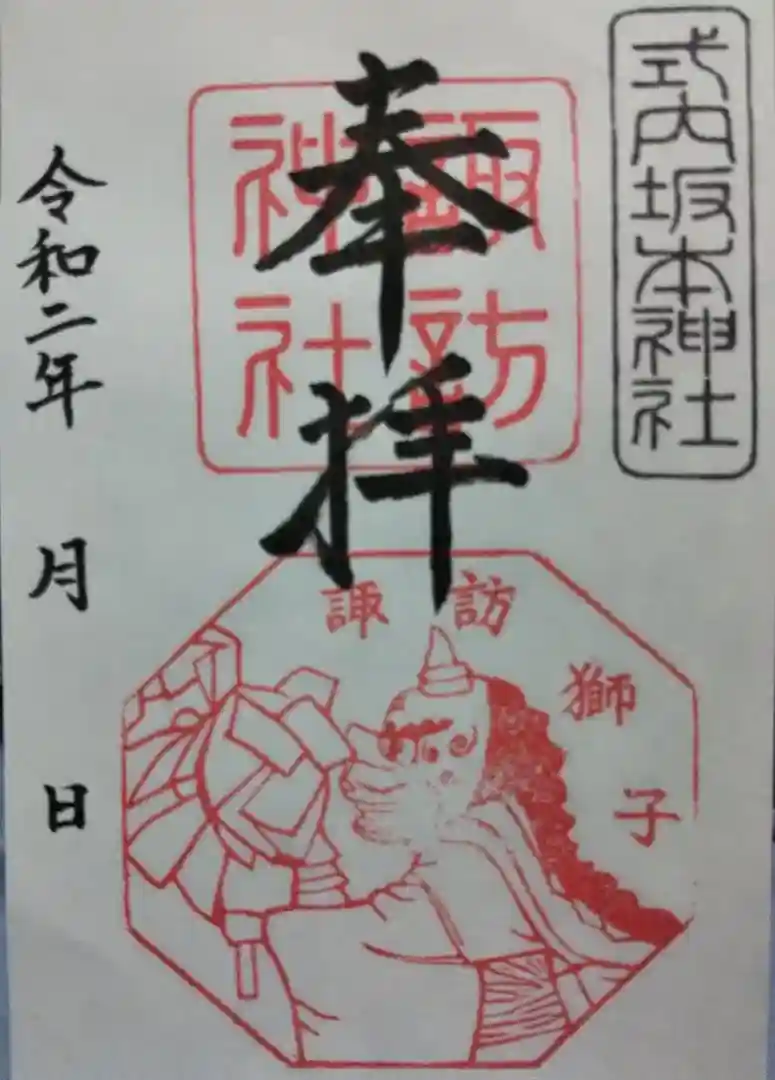 式内坂本神社
奉拝
諏訪
神社
諏訪獅子
令和二年 月 日